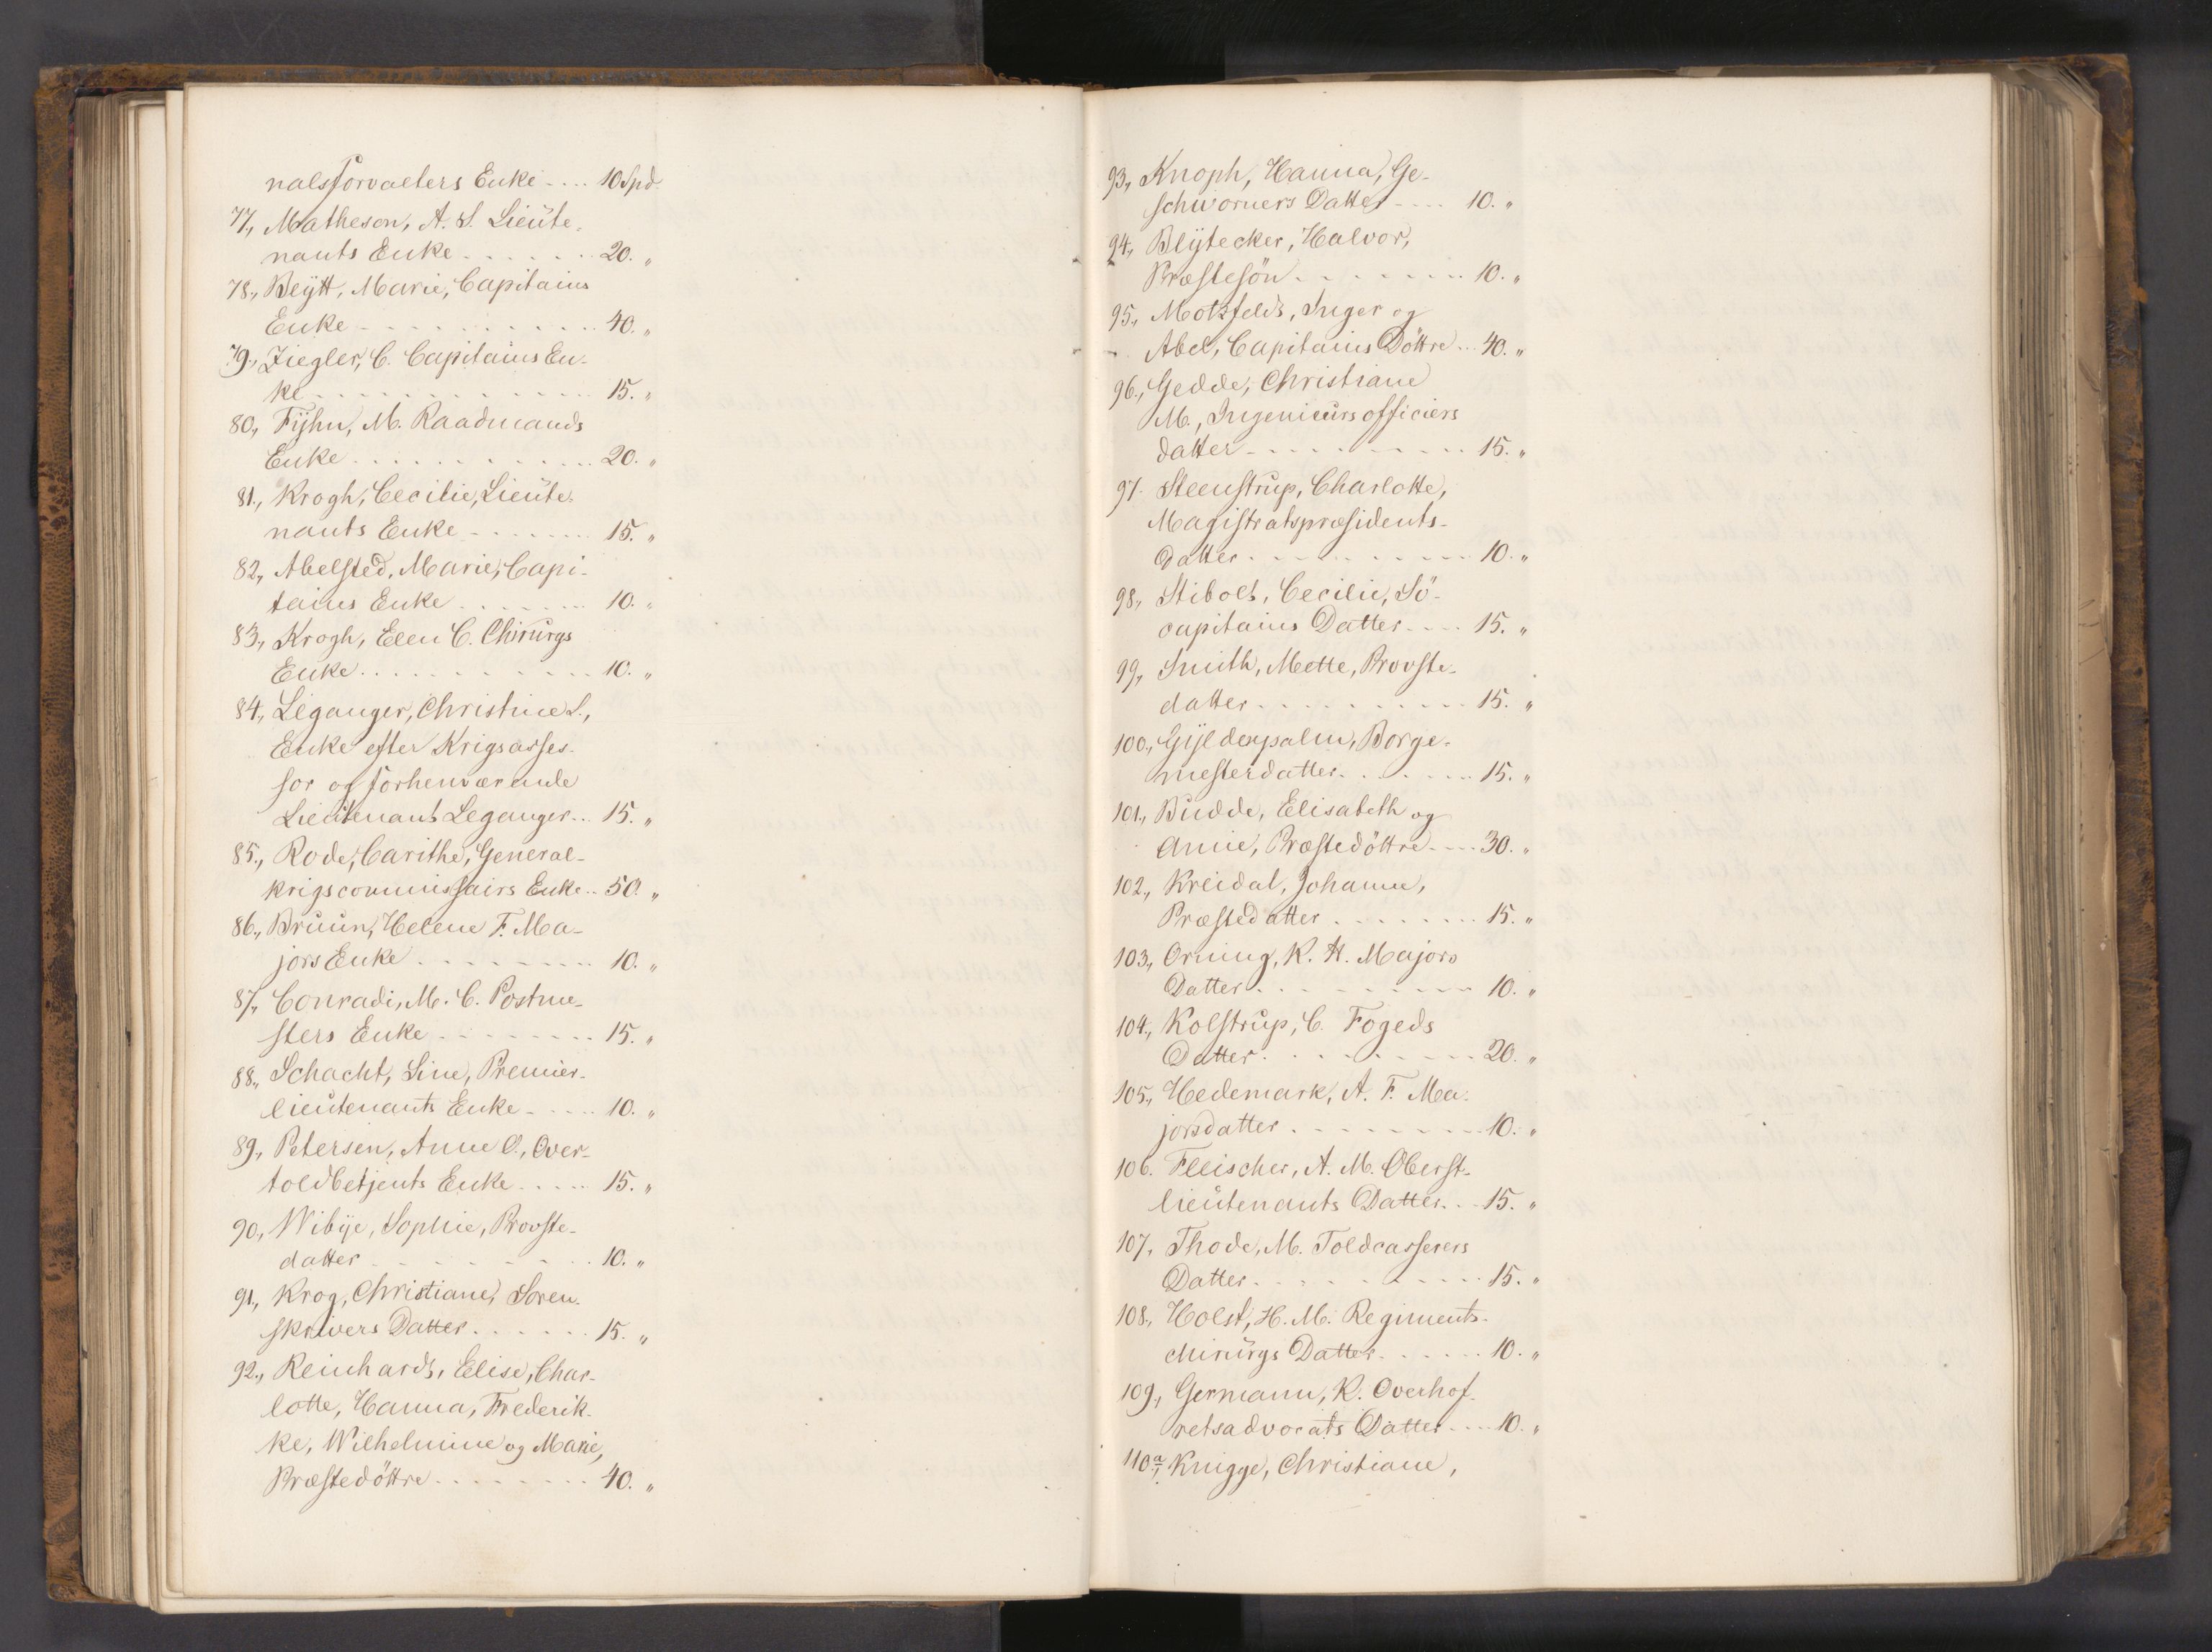 nalsforvalters Enke .... 10 Spd.
77, Matheson, A. S. Lieüte-
nants Enke ...... 20. "
78., Blÿtt, Marie, Capitains
Enke ........... 40. "
79., Ziegler, C. Capitains En-
ke ............ 15. "
80, Fÿhn, M. Raadmands
Enke ........... 20. "
81., Krogh, Cecilie, Lieüte-
nants Enke ....... 15. "
82, Abelsted, Marie, Capi-
tains Enke ....... 10. "
83, Krogh, Elen C. Chirürgs
Enke ........... 10. "
84, Leganger, Christine L.,
Enke efter Krigsasses-
sor og forhenværende
Lieütenant Leganger... 15. "
85., Rode, Carithe, General-
krigscommissairs Enke.. 50. "
86., Brüün, Helene F. Ma-
jors Enke ......... 10. "
87, Conradi, M. C. Postme-
sters Enke ........ 15. "
88., Schacht, Line, Premier-
lieütenants Enke ..... 10. "
89, Petersen, Anne O., Over-
toldbetjents Enke ..... 15. "
90, Wibÿe, Sophie, Provste-
datter .......... 10. "
91., Krog, Christiane, Soren-
skrivers Datter ...... 15. "
92., Reinhardt, Elise, Char-
lotte, Hanna, Frederik-
ke, Wilhelmine og Marie,
Præstedöttre ........ 40. "
93, Knoph, Hanna, Ge-
schworners Datter .... 10. "
94, Blÿtecker, Halvor,
Præstesön ........ 10. "
95, Motzfeldt, Inger og
Abel, Capitains Döttre ... 40. "
96., Gedde, Christiane
M., Ingenieürsofficiers
datter .......... 15. "
97. Steenstrüp, Charlotte,
Magistratspræsidents-
Datter .......... 10. "
98, Stibolt, Cecilie, Sö-
capitains Datter .... 15. "
99, Smith, Mette, Provste-
datter .......... 15. "
100., Gÿldenpalm, Borge-
mesterdatter ....... 15. "
101., Büdde, Elisabeth og
Annie, Præstedöttre .... 30. "
102., Kreidal, Johanne,
Præstedatter ....... 15. "
103, Orning, K. H. Majors
Datter ......... 10. "
104., Kolstrüp, C. Fogeds
Datter ......... 20. "
105., Hedemark, A. F. Ma-
jorsdatter ........ 10. "
106. Fleischer, A. M. Oberst-
lieütenants Datter ... 15. "
107, Thode, M. Toldcasserers
Datter .......... 15. "
108., Holst, H. M. Regiments-
chirürgs Datter ...... 10. "
109, Germann, K. Overhof-
retsadvocats Datter .... 10. "
110a, Knigge, Christiane,